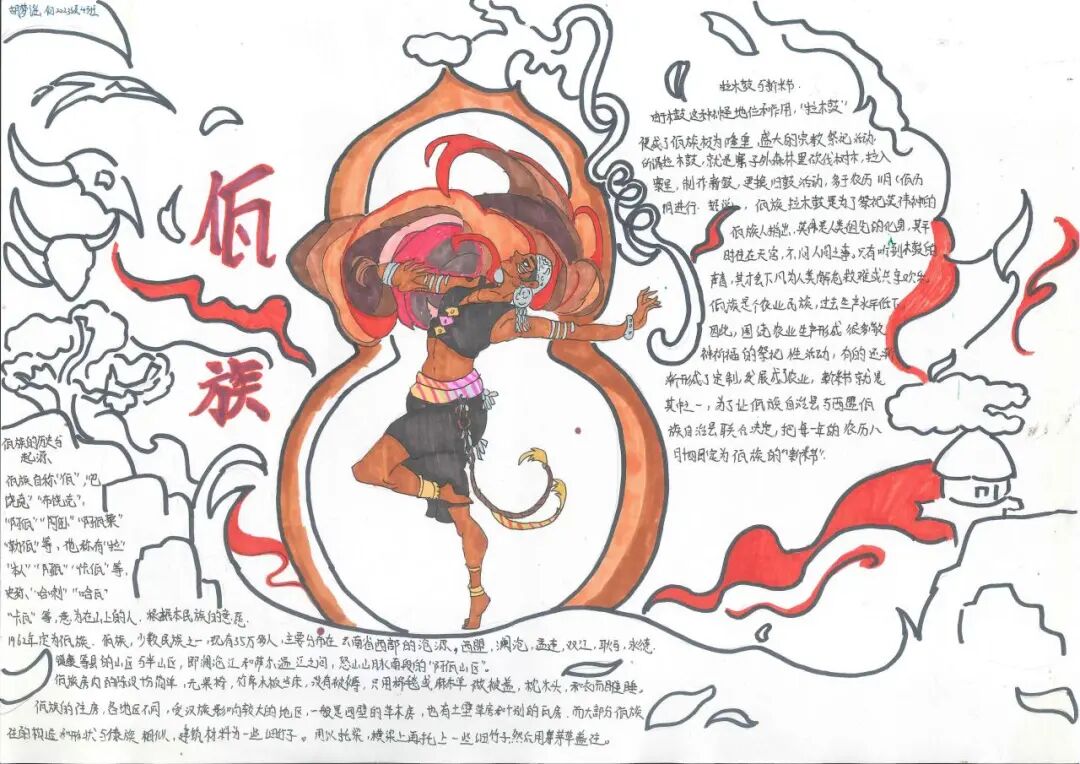 佤
族
拉木鼓与新米节.
由于木鼓这种神怪地位和作用,"拉木鼓"
便成了佤族极为隆重,盛大的宗教祭祀活动.
所谓拉木鼓,就是寨子外森林里砍伐树木,拉入
寨里,制作新鼓,更换旧鼓活动,多于农历11月(佤历
1月进行.
佤族拉木鼓是为了祭祀英伟
佤族人
是人类祖先的化身,其平
时住在天宫,不问人间之事,只有听到木鼓的
声音,其才会下凡为人类解危救难或共享欢乐
佤族是个农业民族,过去生产水平低下,
因此,围绕农业生产形成很多敬
神祈福的祭祀性活动,有的还逐
渐形成了定制,发展成了农业,新米节就是
其中之一,为了让佤族自治县与西盟佤
族自治县联合决定,把每一年的农历八
月十四固定为佤族的"新米节".
佤族的历史与
起源
佤族自称"佤""巴
饶克""布饶克",
"阿佤""阿卧""阿佤莱"
"勒佤"等,也称有"拉"
"本人""阿佤""佧佤"等,
史勐、"哈喇""哈瓦"
"卡瓦"等,意为在山上的人.根据本民族的意愿.
1962年定为佤族.佤族,少数民族之一,现有35万多人,主要分布在云南省西部的沧源,西盟,澜沧,孟连,双江,耿马,永德,
镇康等县的山区与半山区,即澜沧江和萨尔温江之间,怒山山脉南段的"阿佤山区"。
佤族房内的陈设均简单,无桌椅,竹席木板当床,没有被褥,只用棉毯或麻布单做被盖,枕木头,和衣而睡.
佤族的住房,各地区不同,受汉族影响较大的地区,一般是四壁的草木房,也有土壁草房和个别的瓦房.而大部分佤族
住的构造和形状与傣族相似,建筑材料为一些细竹子。用以托梁,横梁上再托上一些细竹子,然后用茅草盖住。